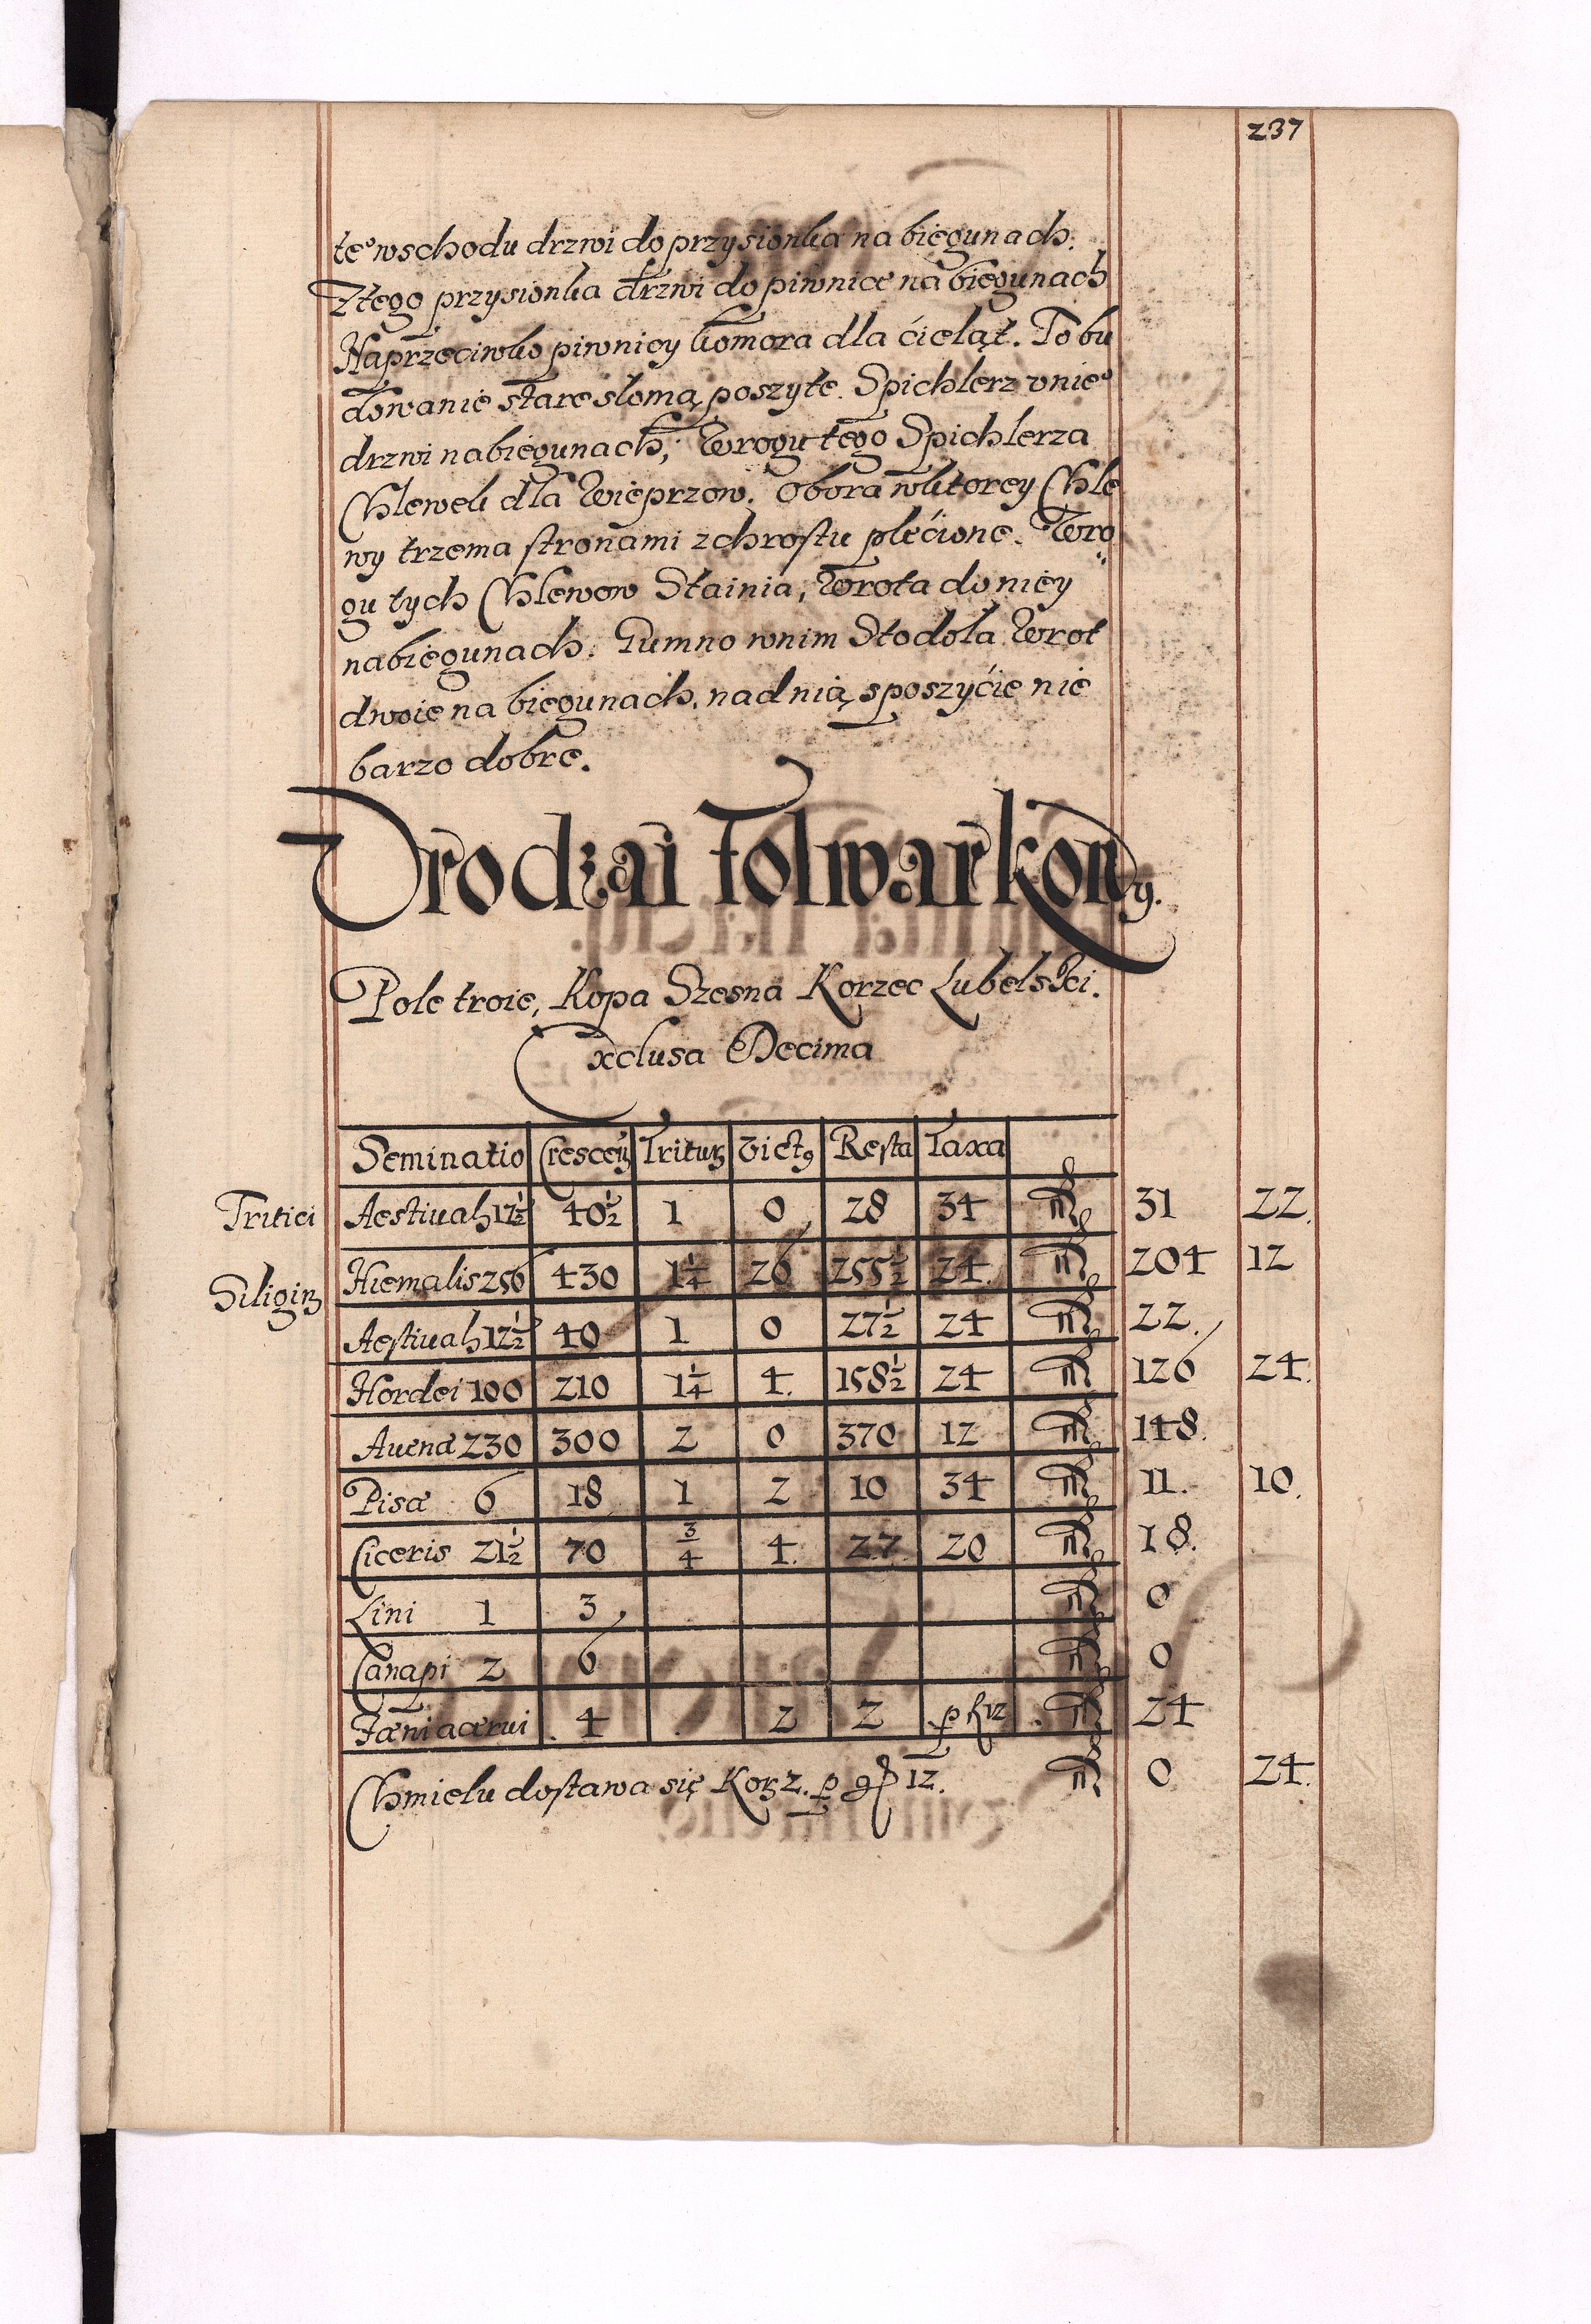 237
te° wschodu drzwi do przysionka na biegunach.
Ztego przysionka drzwi do piwnice na biegunach
Naprzeciwko piwnicy komora dla ćieląt. To bu
dowanie stare słomą poszyte. Spichlerz v nie°
drzwi na biegunach; Wrogu tego Spichlerza
Chlewek dla Wieprzow. Obora wktorey Chle
wy trzema stronami z chrostu plećione. Wro
gu tych Chlewow Stainia, Wrota do niey
na biegunach. Gumno wnim Stodoła Wrot
dwoie na biegunach, nad nią sposzyćie nie
barzo dobre.
Vrodzai Folwarkowy.
Pole troie, Kopa Szesna Korzec Lubelski.
Exclusa Decima
Seminatio Crescen Tritur Vict9 Resta Taxa
Tritici Aestiualis 12½ 40½ 1 0 28 34 31 22.
Siligin Hiemalis 256 430 1¼ 26 255½ 24. 204 12
Aestiualis 12½ 40 1 0 27½ 24 22.
Hordei 100 210 1¼ 4. 158½ 24 126 24.
Auenæ 230 300 2 0 370 12 148.
Pisæ 6 18 1 2 10 34 11. 10.
Ciceris 21½ 70 ¾ 4. 27. 20 18.
Lini 1 3 0
Canapi 2 6 0
Fæni acerui 4 2 2 p f 12 24
Chmielu dostawa się Korz 2. p gr 12. 0 24.